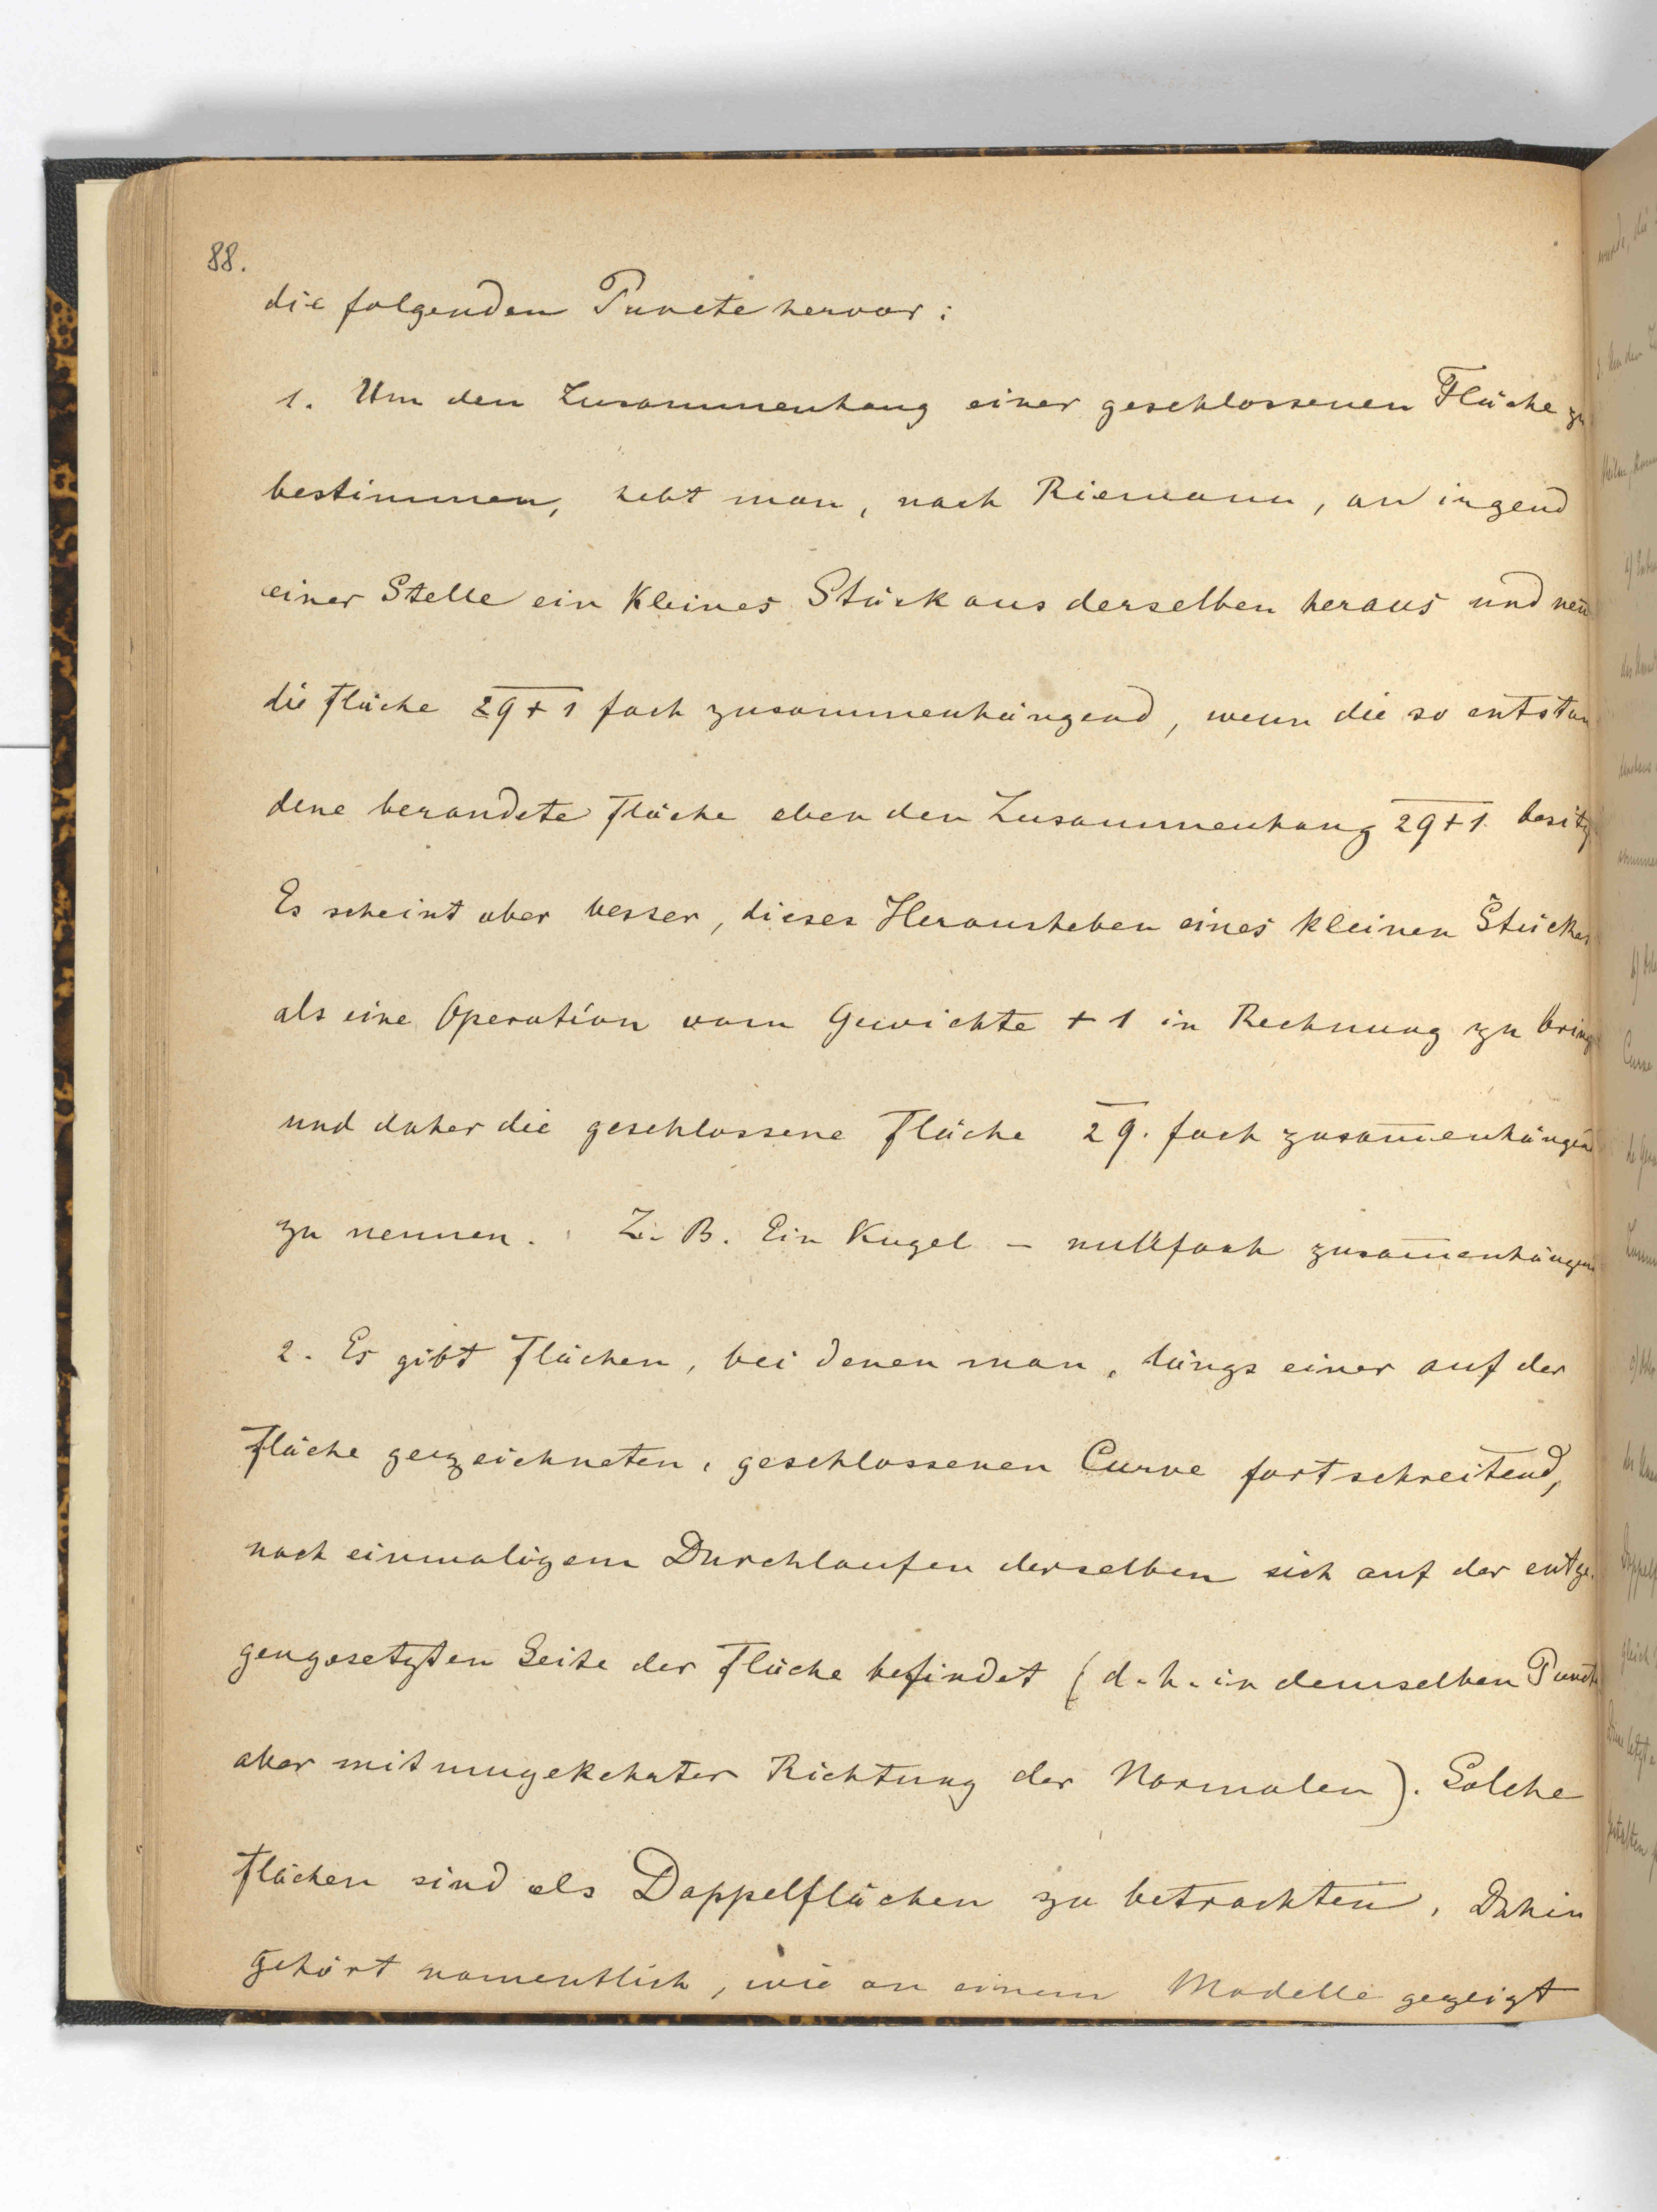 88.
die folgenden Puncte hervor:
1. Um den Zusammenhang einer geschlossenen Fläche zu
bestimmen, hebt man, nach Riemann, an irgend
einer Stelle ein kleines Stück aus derselben heraus und nen̄
die Fläche 2q+1 fach zusammenhängend, wenn die so entstan
dene berandete Fläche eben den Zusammenhang 2q+1 besitz
Es scheint aber besser, dieses Herausheben eines kleinen Stückes
als eine Operation vom Gewichte +1 in Rechnung zu bring
und daher die geschlossene Fläche 2q. fach zusam̄enhängend
zu nennen. Z. B. Ein Kugel – nullfach zusam̄enhängend
2. Es gibt Flächen, bei denen man, längs einer auf der
Fläche gezeichneten, geschlossenen Curve fortschreitend,
nach einmaligem Durchlaufen derselben sich auf der entge-
gengesetzten Seite der Fläche befindet (d. h. in demselben Punct
aber mit umgekehrter Richtung der Normalen). Solche
Flächen sind als Doppelflächen zu betrachten. Dahin
gehört namentlich, wie an einem Modelle gezeigt